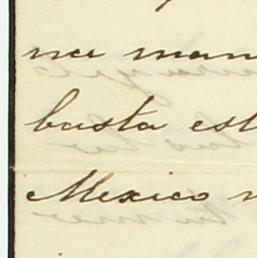 na man
basta est
Mexico